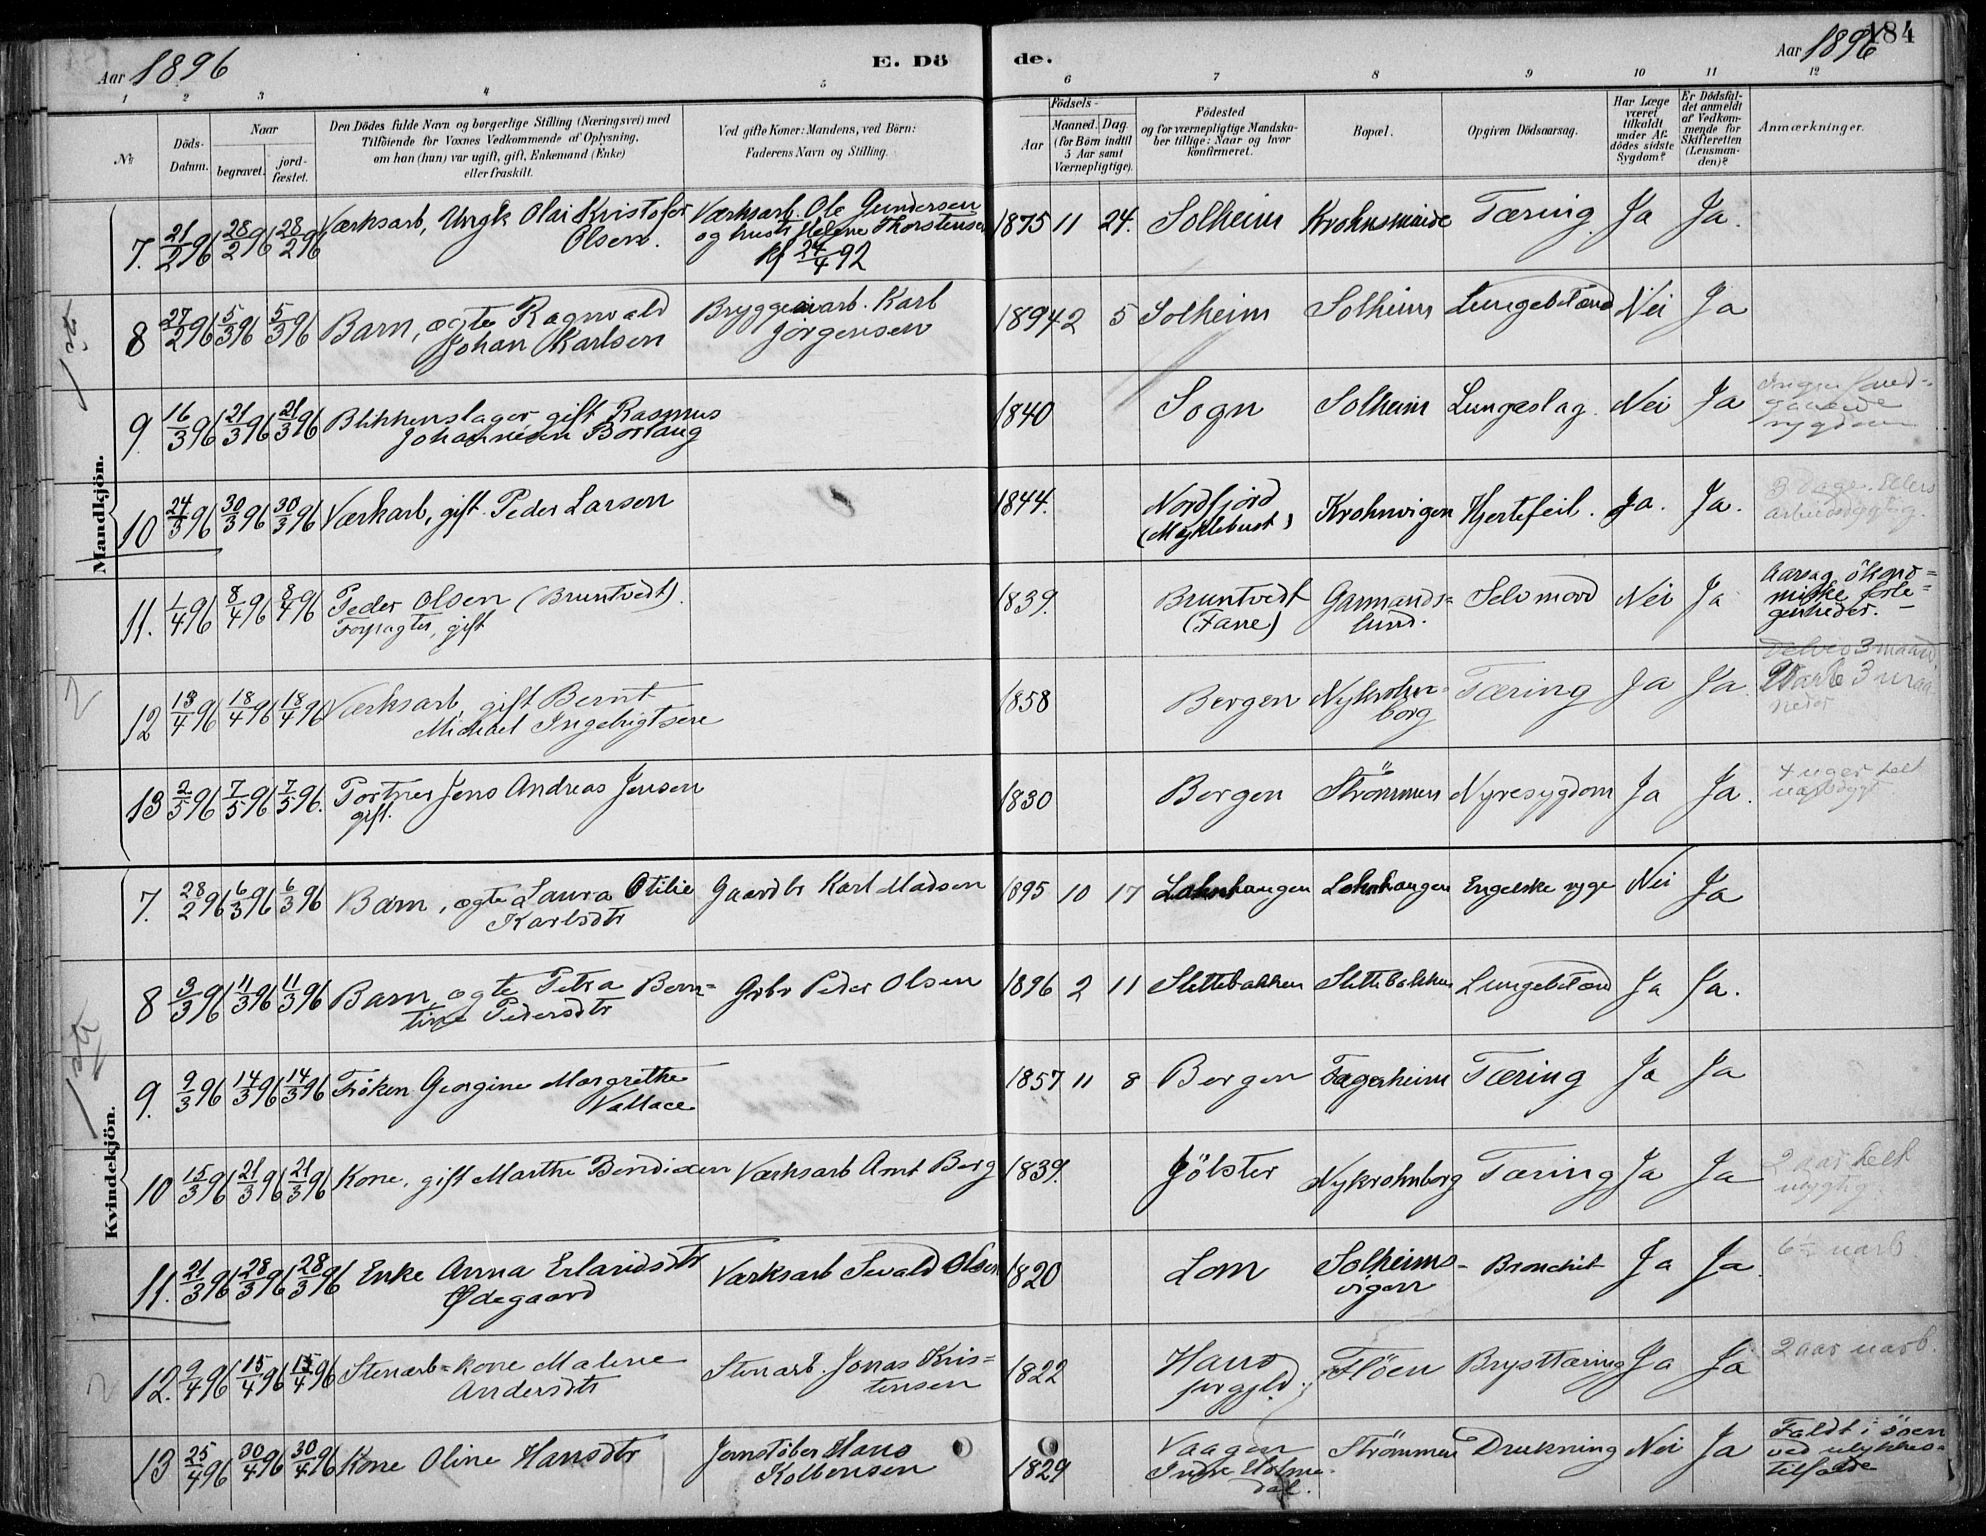 Aar 1896
E. Dö
de.
Aar 1896
184
1 2 3 4 5 6 7 8 9 10 11 12
No.
Døds-Datum.
Naar
begravet.
jordfæstet.
Den Dödes fulde Navn og borgerlige Stilling (Næringsvei) med
Tilföiende for Voxnes Vedkommende af Oplysning,
om han (hun) var ugift, gift, Enkemand (Enke)
eller fraskilt.
Ved gifte Koner: Mandens, ved Börn:
Faderens Navn og Stilling.
Födsels-
Aar
Maaned. Dag.
(for Börn indtil
5 Aar samt
Værnepligtige).
Födested
og for værnepligtige Mandskaber tillige: Naar og hvor
konfirmeret.
Bopæl.
Opgiven Dödsaarsag.
Har Læge
været
tilkaldt
under Afdödes sidste
Sygdom?
Er Dödsfaldet anmeldt
af Vedkommende for
Skifteretten
(Lensmanden)?
Anmærkninger.
Mandkjön.
7. 21/2 96 28/2 96 28/2 96 Værksarb, Ungk Olai Kristofer Olsen. Værksarb. Ole Gundersen og hustr Helene Thorstensen kf 24/4 92 1875 11 24. Solheim Krohnsminde Tæring Ja Ja.
8 27/2 96 5/3 96 5/3 96 Barn, ægte Ragnvald Johan Karlsen Bryggeriarb. Karl Jörgensen 1894 2 5 Solheim Solheim Lungebetænd Nei Ja
9. 16/3 96 21/3 96 21/3 96 Blikkenslager gift Rasmus Johannesen Borlaug 1840 Sogn Solheim Lungeslag. Nei Ja
10 24/3 96 30/3 96 30/3 96 Værkarb, gift Peder Larsen 1844. Nordfjord (Myklebust) Krohnvigen Hjertefeil. Ja. Ja. 3 dage
11. 1/4 96 8/4 96 8/4 96 Peder Olsen (Bruntvedt). Forpagter, gift 1839. Bruntvedt (Fane) Garmandslund. Selvmord Nei Ja Aarsag ökonomiske forlegenheder.
12 13/4 96 18/4 96 18/4 96 Værksarb, gift Bernt Michael Ingebrigtsen 1858 Bergen Nykrohnborg Tæring Ja Ja 3 maaneder
13 2/5 96 7/5 96 7/5 96. Portner Jens Andreas Jensen gift. 1830 Bergen Strömmen Nyresygdom Ja Ja. 4 uger helt
Kvindekjön.
7. 28/2 96 6/3 96 6/3 96 Barn, ægte Laura Otilie Karlsdtr Gaardbr Karl Madsen 1895 10 17 Lahnhaugen Lahnhaugen Engelske syge Nei Ja
8 3/3 96 11/3 96 11/3 96 Barn ægte Petra Berntine Pedersdtr Grbr Peder Olsen 1896 2 11 Slettebakken Slettebakken Lungebetænd Ja Ja.
9. 9/3 96 14/3 96 14/3 96 Fröken Georgine Margrethe Vallace 1857 11 8 Bergen Fagerheim Tæring Ja Ja
10 15/3 96 21/3 96 21/3 96 Kone, gift Marthe Bendixen Værksarb Arnt Berg 1839. Jölster Nykrohnborg Tæring Ja Ja 2 aar helt
11. 21/3 96 28/3 96 28/3 96 Enke Anna Erlandsdtr Ødegaard Værksarb Sevald Olsen 1820 Lom Solheimsvigen Bronchit Ja Ja.
12. 9/4 96 15/4 96 15/4 96 Stenarb-kone Malene Andersdtr Stenarb. Jonas Kristensen 1822 Flöen Brysttæring Ja Ja 2 aar uarb.
13 25/4 96 30/4 96 30/4 96 Kone Oline Hansdtr Jernstöber Hans Kolbensen 1829 Vaagen Indre Holmedal. Strömmen Drukning Nei Ja Faldt i söen ved ulykkestilfælde